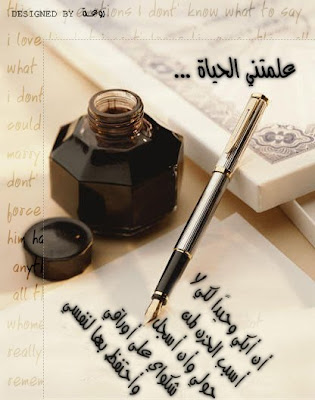 DESIGNED BY روعـة
I don't know what to say
علمتني الحياة ...
i love
what
i dont
could
marry
dont'
force
him ha
anyt
all t
whom
really
remem
أن أبكي وحيداً لكي لا
أسبب الحزن لمن
حولي وأن أسجل
شكواي على أوراقي
وأحتفظ بها لنفسي